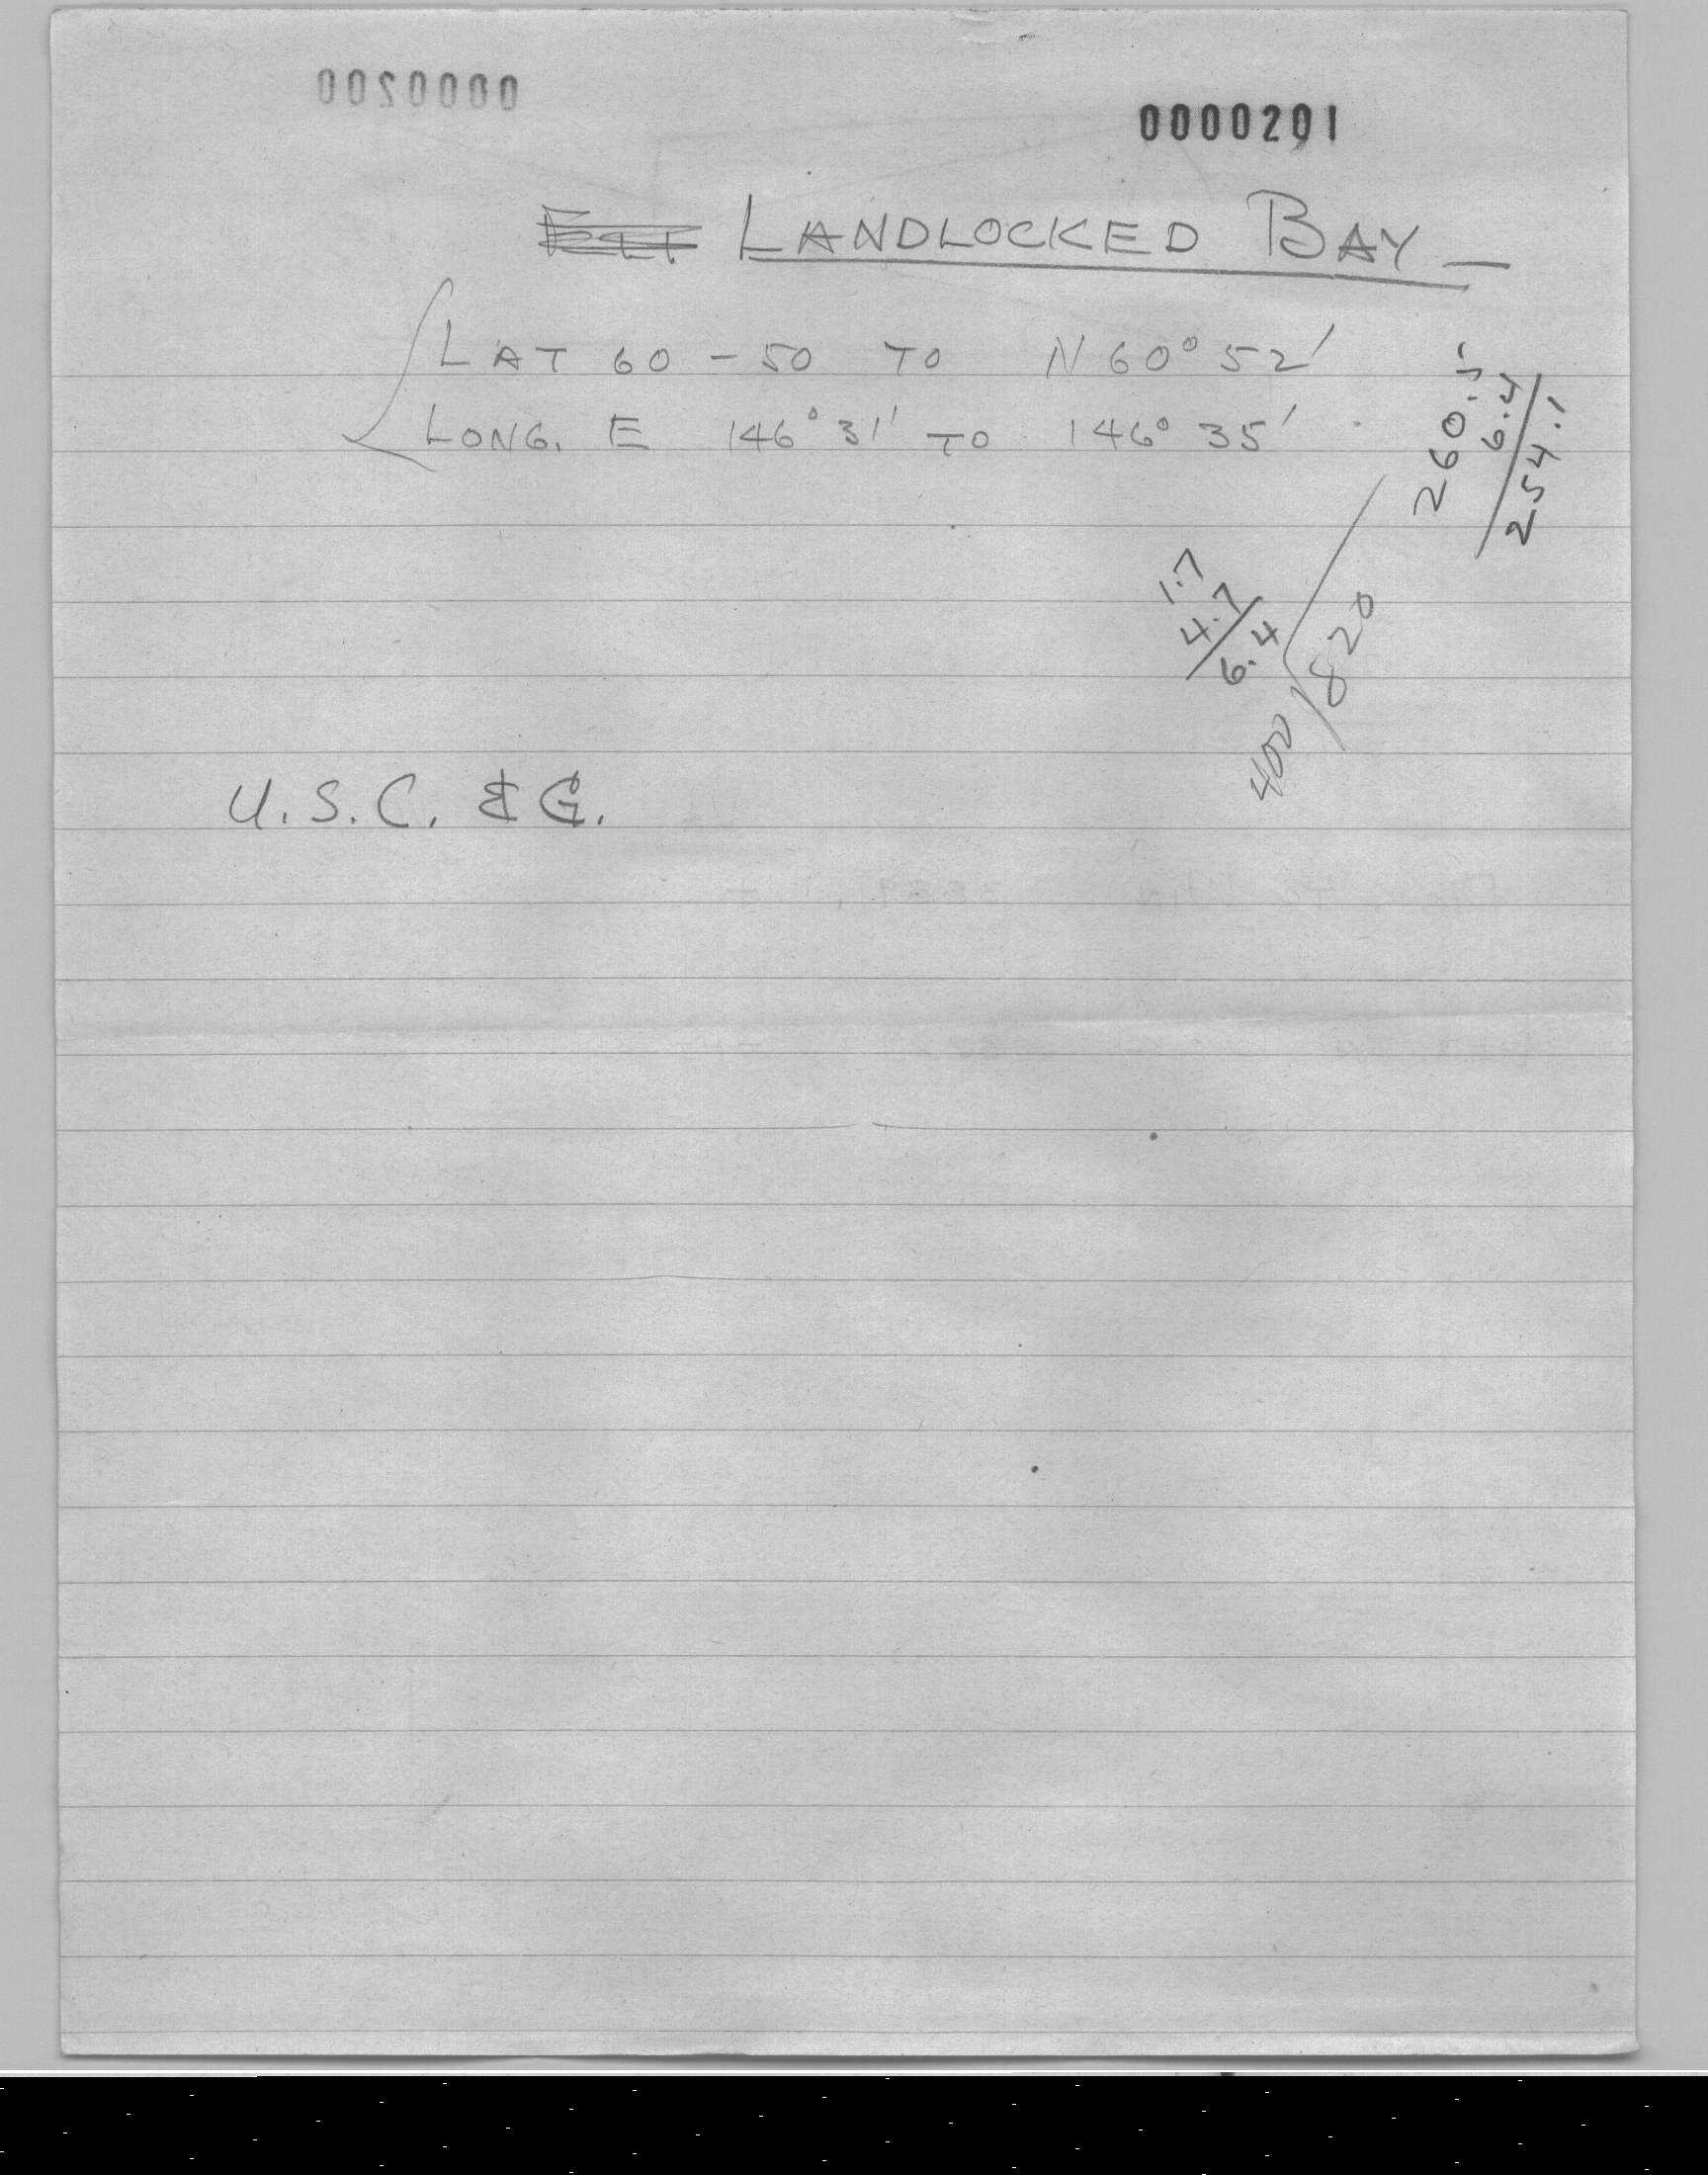 0000200
0000201
LANDLOCKED BAY —
LAT 60 - 50 TO N 60° 52'
LONG. E 146° 31' TO 146° 35'
260.5
6.4
254.1
1.7
4.7
6.4
400 / 820
U.S.C. & G.